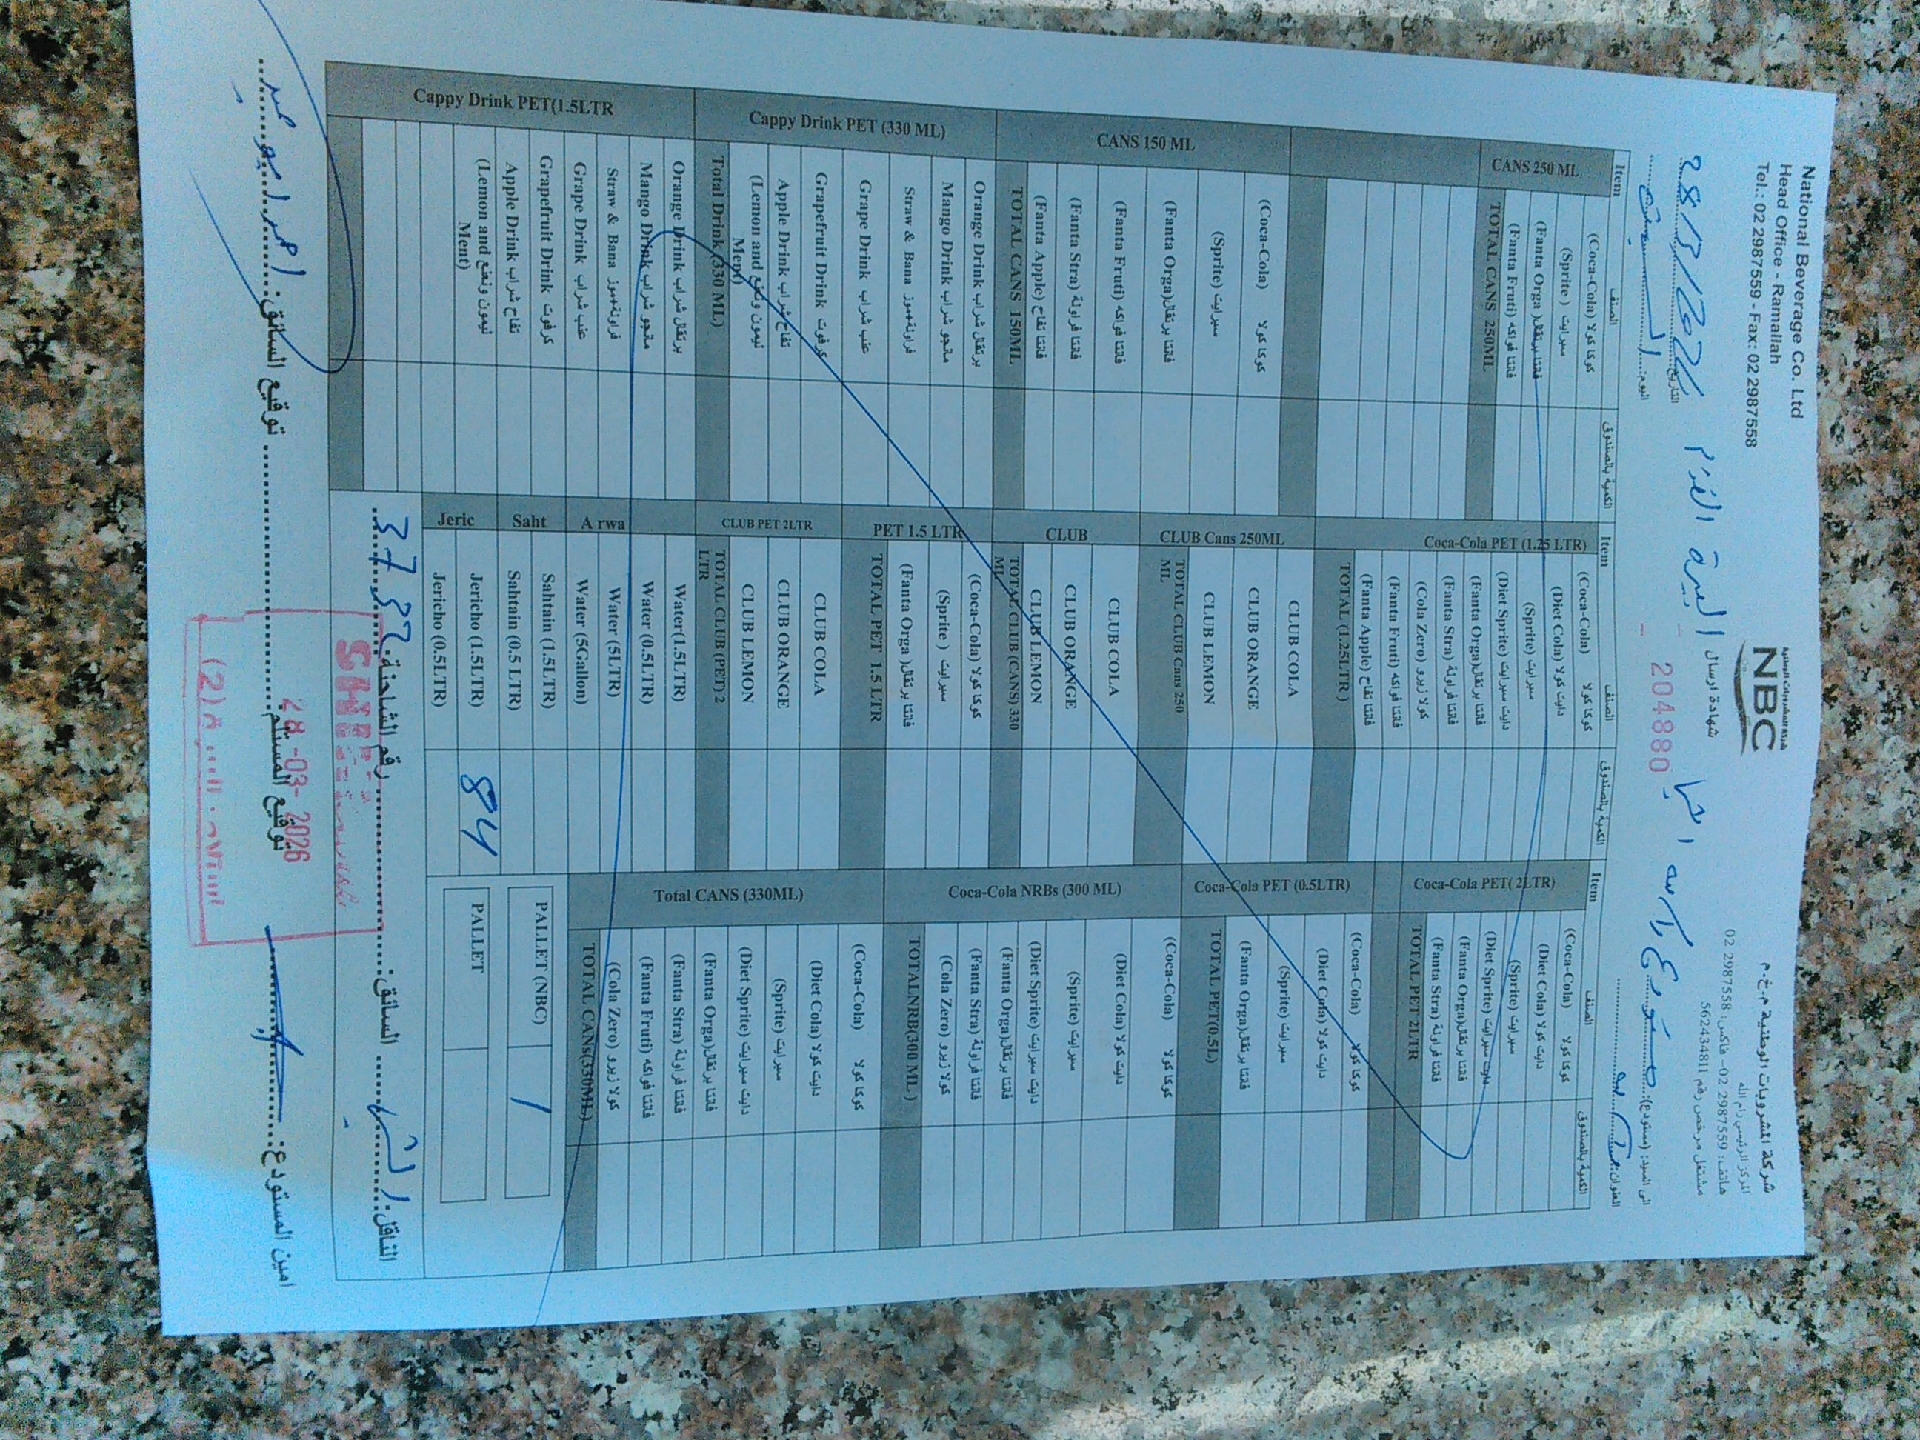 National Beverage Co. Ltd
Head Office - Ramallah
Tel.: 02 2987559 - Fax: 02 2987558
شركة المشروبات الوطنية
NBC
شركة المشروبات الوطنية م.خ.م
المركز الرئيسي رام الله
هاتف: 2987559 02 - فاكس: 2987558 02
مشتغل مرخص رقم 562434811
شهادة ارسال
204880
التاريخ: 28/3/2026
اليوم: السبت
الى السيد: (مستودع):
العنوان:
Item الصنف الكمية بالصندوق
CANS 250 ML
كوكا كولا (Coca-Cola)
سبرايت (Sprite)
فانتا برتقال (Fanta Orga)
فانتا فواكه (Fanta Fruti)
TOTAL CANS 250ML
CANS 150 ML
كوكا كولا (Coca-Cola)
سبرايت (Sprite)
فانتا برتقال (Fanta Orga)
فانتا فواكه (Fanta Fruti)
فانتا فراولة (Fanta Stra)
فانتا تفاح (Fanta Apple)
TOTAL CANS 150ML
Cappy Drink PET (330 ML)
برتقال شراب Orange Drink
مانجو شراب Mango Drink
فراولة+موز Straw & Bana
عنب شراب Grape Drink
كرفوت Grapefruit Drink
تفاح شراب Apple Drink
ليمون ونعنع (Lemon and Ment)
Total Drink (330 ML)
Cappy Drink PET(1.5LTR
برتقال شراب Orange Drink
مانجو شراب Mango Drink
فراولة+موز Straw & Bana
عنب شراب Grape Drink
كرفوت Grapefruit Drink
تفاح شراب Apple Drink
ليمون ونعنع (Lemon and Ment)
Item الصنف الكمية بالصندوق
Coca-Cola PET (1.25 LTR)
كوكا كولا (Coca-Cola)
دايت كولا (Diet Cola)
سبرايت (Sprite)
دايت سبرايت (Diet Sprite)
فانتا برتقال (Fanta Orga)
فانتا فراولة (Fanta Stra)
كولا زيرو (Cola Zero)
فانتا فواكه (Fanta Fruti)
فانتا تفاح (Fanta Apple)
TOTAL (1.25LTR )
CLUB Cans 250ML
CLUB COLA
CLUB ORANGE
CLUB LEMON
TOTAL CLUB Cans 250 ML
CLUB
CLUB COLA
CLUB ORANGE
CLUB LEMON
TOTAL CLUB (CANS) 330 ML
PET 1.5 LTR
كوكا كولا (Coca-Cola)
سبرايت (Sprite )
فانتا برتقال (Fanta Orga)
TOTAL PET 1.5 LTR
CLUB PET 2LTR
CLUB COLA
CLUB ORANGE
CLUB LEMON
TOTAL CLUB (PET) 2 LTR
Arwa
Water(1.5LTR)
Water (0.5LTR)
Water (5LTR)
Water (5Gallon)
Saht
Sahtain (1.5LTR)
Sahtain (0.5 LTR)
Jeric
Jericho (1.5LTR) 84
Jericho (0.5LTR)
Item الصنف الكمية بالصندوق
Coca-Cola PET( 2LTR)
كوكا كولا (Coca-Cola)
دايت كولا (Diet Cola)
سبرايت (Sprite)
دايت سبرايت (Diet Sprite)
فانتا برتقال (Fanta Orga)
فانتا فراولة (Fanta Stra)
TOTAL PET 2LTR
Coca-Cola PET (0.5LTR)
كوكا كولا (Coca-Cola)
دايت كولا (Diet Cola)
سبرايت (Sprite)
فانتا برتقال (Fanta Orga)
TOTAL PET(0.5L)
Coca-Cola NRBs (300 ML)
كوكا كولا (Coca-Cola)
دايت كولا (Diet Cola)
سبرايت (Sprite)
دايت سبرايت (Diet Sprite)
فانتا برتقال (Fanta Orga)
فانتا فراولة (Fanta Stra)
كولا زيرو (Cola Zero)
TOTALNRB(300 ML)
Total CANS (330ML)
كوكا كولا (Coca-Cola)
دايت كولا (Diet Cola)
سبرايت (Sprite)
دايت سبرايت (Diet Sprite)
فانتا برتقال (Fanta Orga)
فانتا فراولة (Fanta Stra)
فانتا فواكه (Fanta Fruti)
كولا زيرو (Cola Zero)
TOTAL CANs(330ML)
PALLET (NBC) 1
PALLET
الناقل: السائق: رقم الشاحنة: 3732
امين المستودع: توقيع المستلم توقيع السائق:
28 -03- 2026
(2)